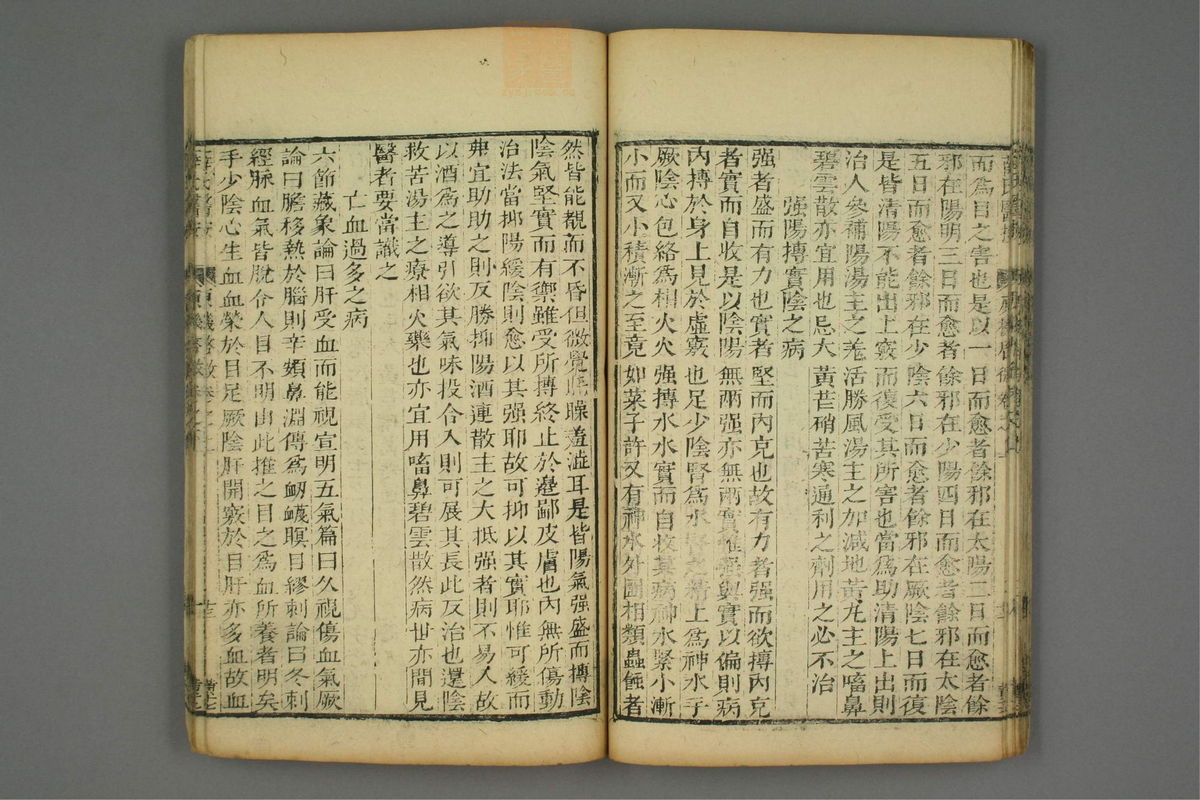 而為目之害也是以一日而愈者餘邪在太陽三日而愈者餘
邪在陽明三日而愈者餘邪在少陽四日而愈者餘邪在太陰
五日而愈者餘邪在少陰六日而愈者餘邪在厥陰七日而復
是皆清陽不能出上竅而復受其所害也當為助清陽上出則
治人參補陽湯主之羗活勝風湯主之加減地黃丸主之㗜鼻
碧雲散亦宜用也忌大黃芒硝苦寒通利之劑用之必不治
強陽搏實陰之病
强者盛而有力也實者堅而內克也故有力者强而欲搏內克
者實而自收是以陰陽無兩强亦無兩實惟强與實以偏則病
內搏於身上見於虛竅也足少陰腎為水腎之精上為神水手
厥陰心包絡為相火火强搏水水實而自收其病神水緊小漸
小而又小積漸之至竟如菜子許又有神水外圍相類蟲蝕者
然皆能覩而不昏但微覺眊矂羞澁耳是皆陽氣强盛而搏陰
陰氣堅實而有禦雖受所搏終止於邊鄙皮膚也內無所傷動
治法當抑陽緩陰則愈以其强耶故可抑以其實耶惟可緩而
弗宜助助之則反勝抑陽酒連散主之大抵强者則不易人故
以酒為之導引欲其氣味投合入則可展其長此反治也還陰
救苦湯主之療相火藥也亦宜用㗜鼻碧雲散然病世亦間見
醫者要當識之
亡血過多之病
六節藏象論曰肝受血而能視宣明五氣篇曰久視傷血氣厥
論曰膽移熱於腦則辛頞鼻淵傳為衂衊瞑目繆刺論曰冬刺
經脈血氣皆脫令人目不明由此推之目之為血所養者明矣
手少陰心生血血榮於目足厥陰肝開竅於目肝亦多血故血